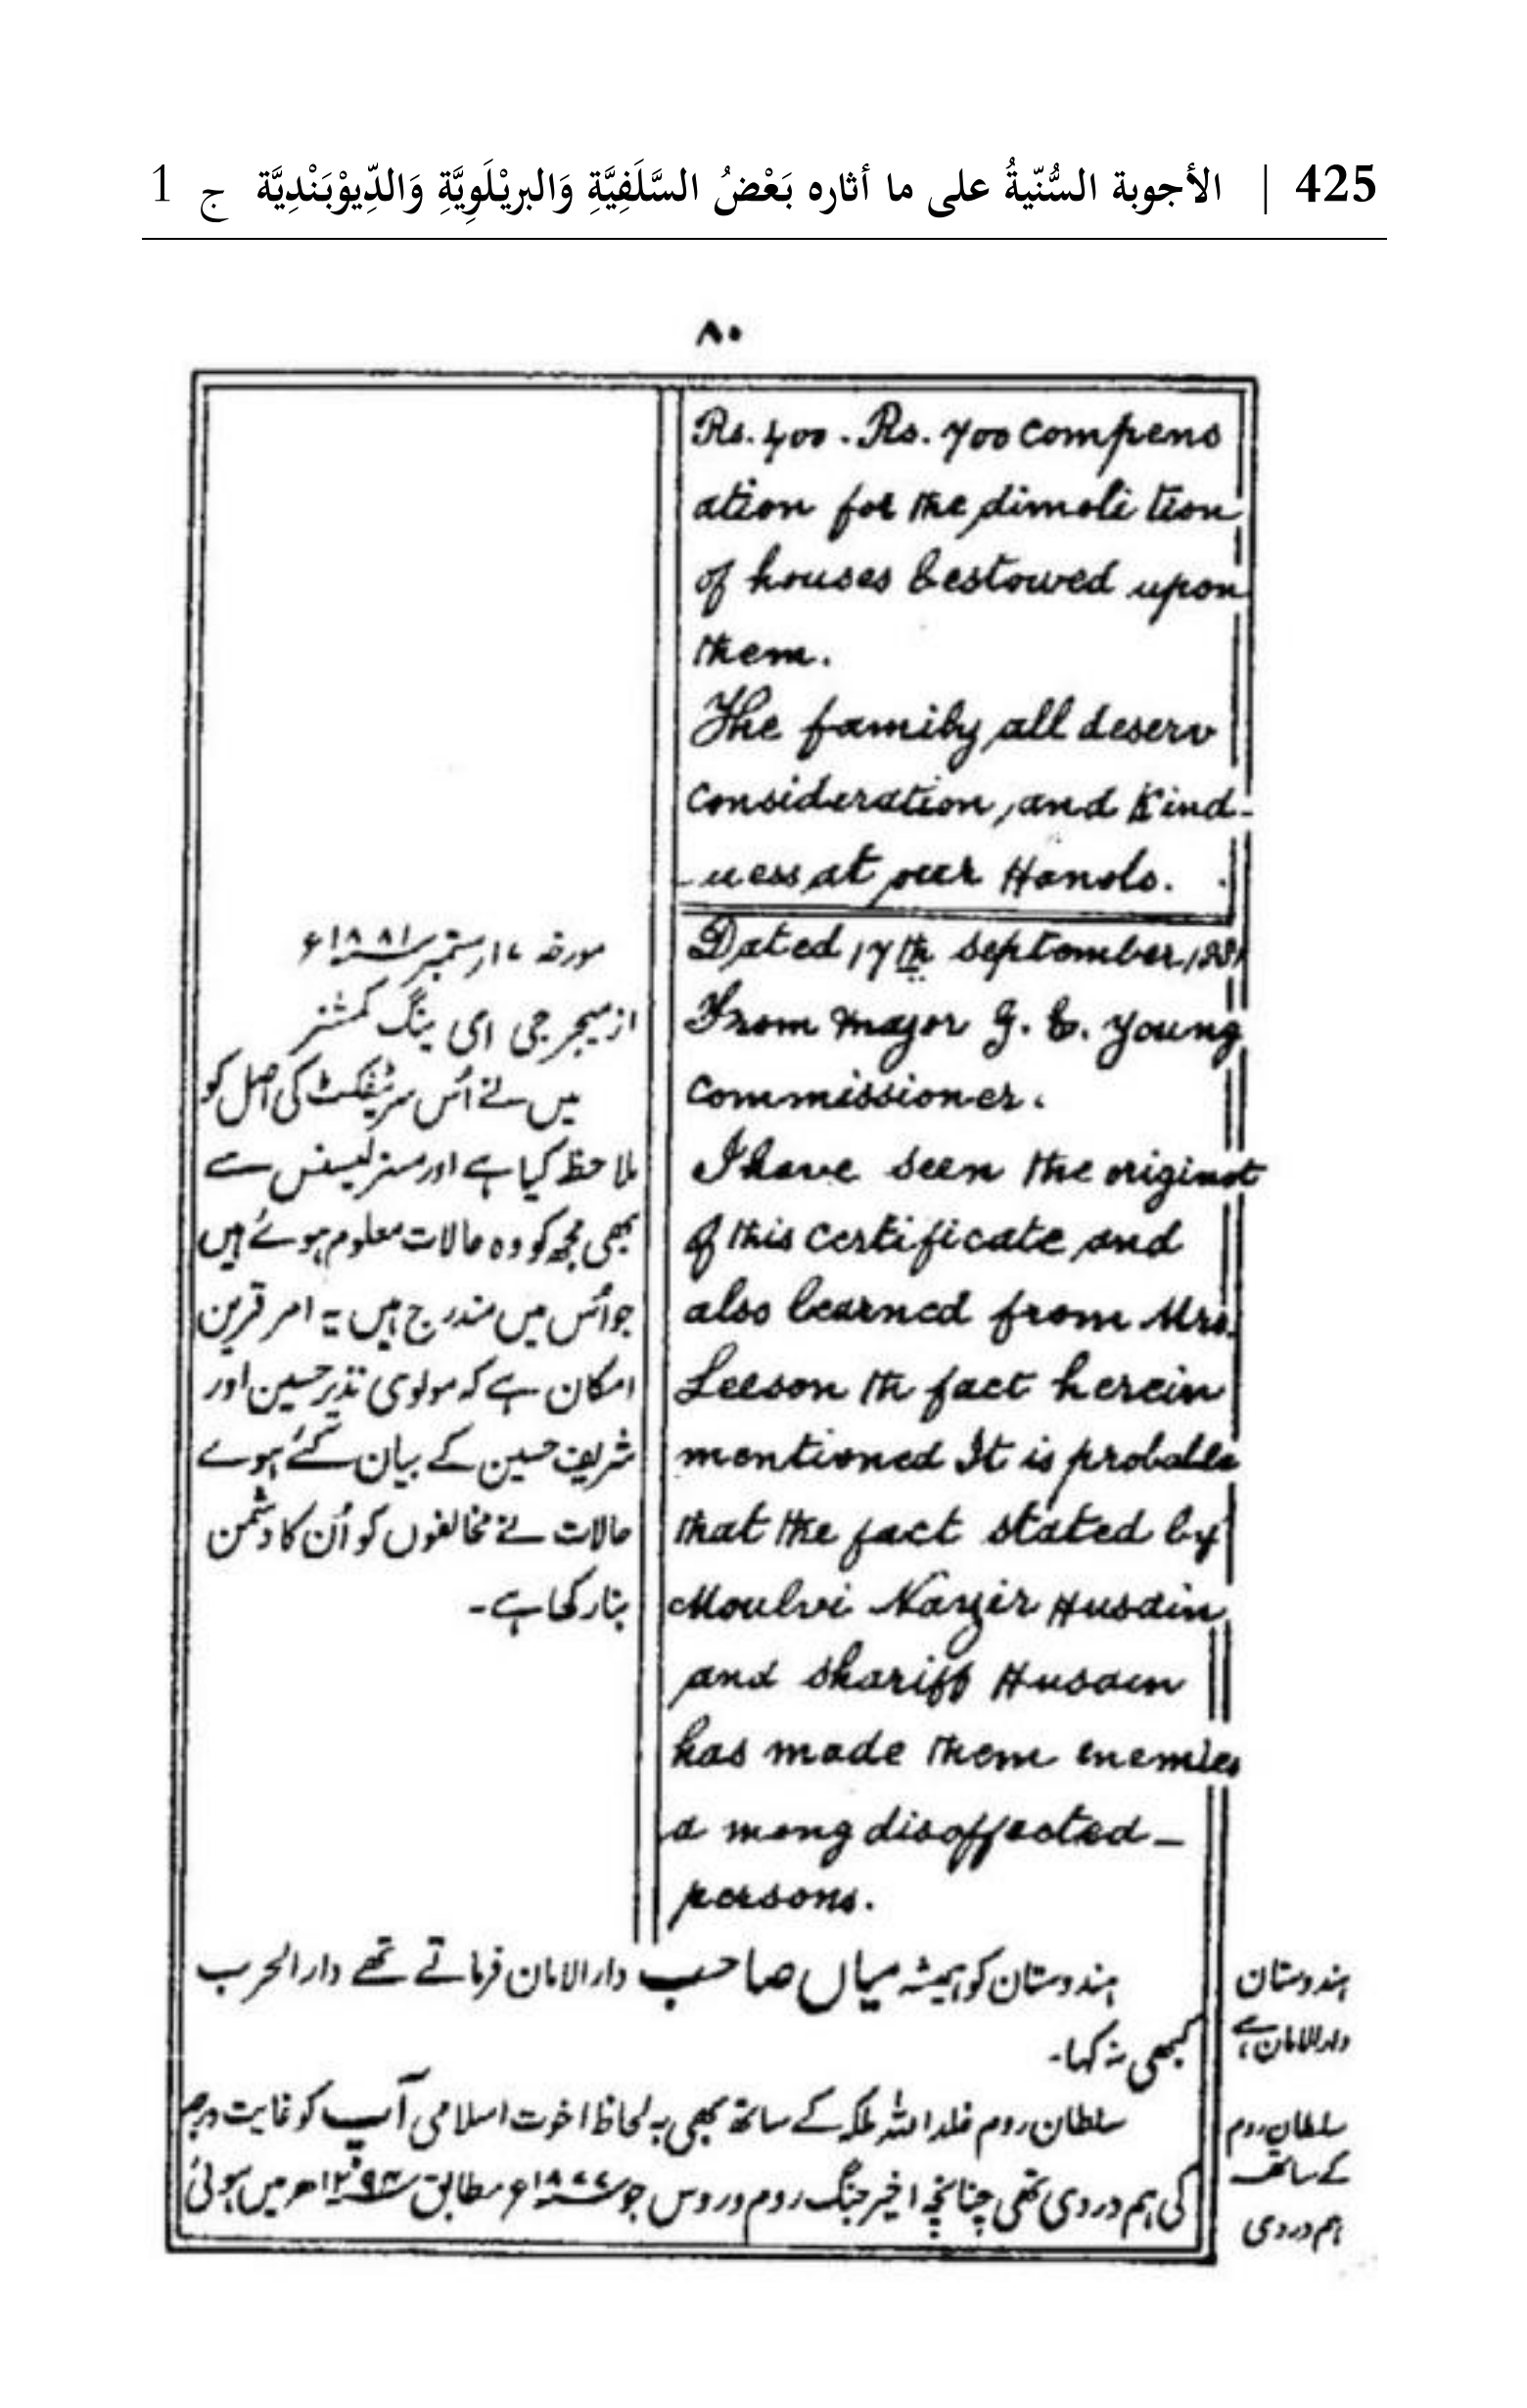 425 | الأجوبة السُّنّيةُ على ما أثاره بَعْضُ السَّلَفِيَّةِ وَالبريْلَوِيَّةِ وَالدِّيوْبَنْدِيَّة ج 1
۸۰
Rs. 400 . Rs. 700 compens
ation for the dimoli tion
of houses bestowed upon
them.
The family all deserv
consideration, and Kind-
-ness at our Hands.
Dated 17th september, 1881
From Major G. E. Young
Commissioner.
I have seen the original
of this certificate and
also learned from Mrs.
Leeson th fact herein
mentioned It is probable
that the fact stated by
Moulvi Nazir Husain
and shariff Husain
has made them enemies
a mong disaffected -
persons.
مورخہ ۱۷ ستمبر ۱۸۸۱ء
از میجر جی ای ینگ کمشنر
میں نے اُس سرٹیفکٹ کی اصل کو
ملاحظہ کیا ہے اور مسز لیسنس سے
بھی مجھ کو وہ حالات معلوم ہوئے ہیں
جو اُس میں مندرج ہیں یہ امر قرین
امکان ہے کہ مولوی نذیر حسین اور
شریف حسین کے بیان کئے ہوے
حالات نے مخالفوں کو اُن کا دشمن
بنا رکھا ہے۔
ہندوستان کو ہمیشہ میاں صاحب دارالامان فرماتے تھے دارالحرب
کبھی نہ کہا۔
سلطان روم خلد اللہ ملکہ کے ساتھ بھی بہ لحاظ اخوت اسلامی آپ کو غایت درجہ
کی ہم دردی تھی چنانچہ اخیر جنگ روم و روس جو ۱۸۷۷ء مطابق ۱۲۹۴ھ میں ہوئی
ہندوستان
دارالامان ہے
سلطان روم
کے ساتھ
ہم دردی